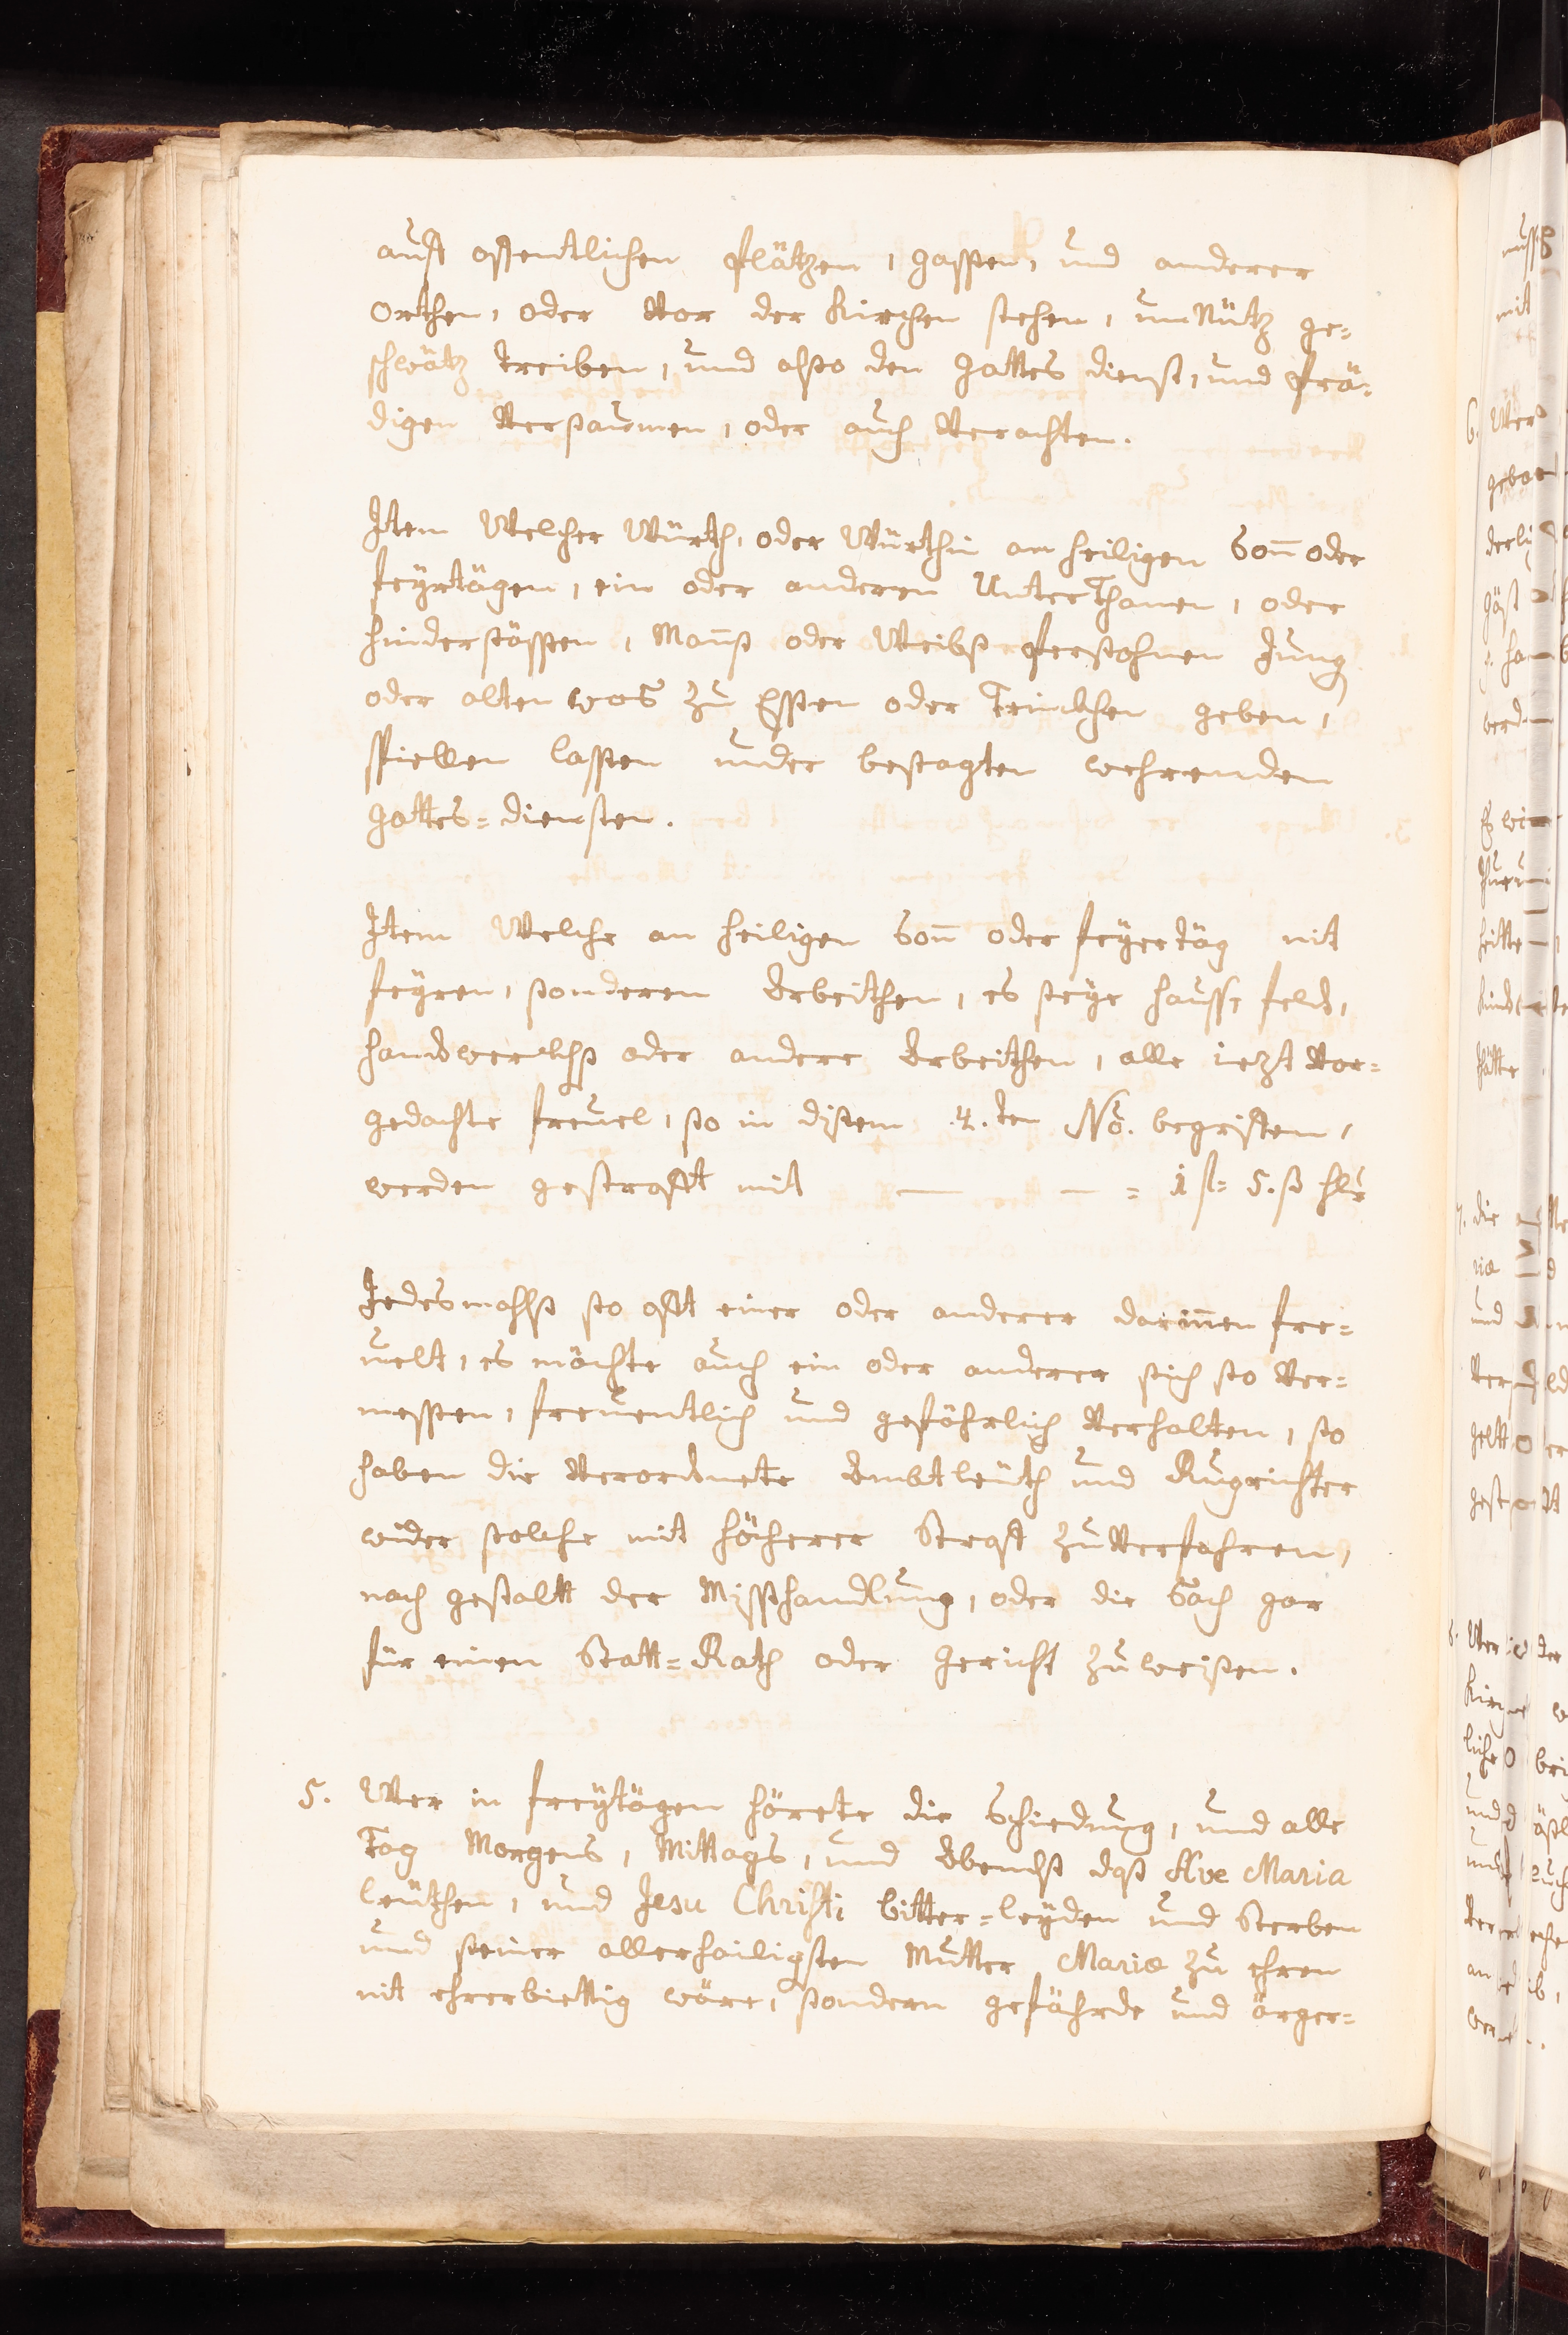 auff offentlichen plätzen, gassen, und anderer
orthen, oder Vor der Kirchen stehen, unNütz ge=
schwätz treiben, und also den Gottes dienst, und prä=
digen Versaumen, oder auch Verachten.
Item Welcher Würth, oder Würthin am heiligen Son̄ oder
feyrtägen, ein oder anderen UnterThanen, oder
hindersässen, Man̄ß oder Weibß persohnen Jung
oder alten was zu Essen oder Trinckhen geben,
spiellen lassen under besagten wehrenden
Gottes=diensten.
Item Welche an heiligen Son̄ oder feyertäg nit
feyren, sonderen Arbeithen, es seye hauss, feld,
handwerckhß oder andere Arbeithen, alle iezt Vor=
gedachte freuel, so in disem .4.ten No. begriffen,
werden gestrafft mit — — = 1 fl= 5. ß hlr
Jedesmahlß so offt einer oder anderer darin̄en fre=
uelt, es möchte auch ein oder anderer sich so Ver=
messen, freuentlich und gefährlich Verhalten, so
haben die Verordnete Ambtleüth und Rugrichter
wider solche mit höcherer Straff zuVerfahren,
nach gestalt der Missthandlung, oder die Sach gar
für einen Statt=Rath oder Gericht zuweisen.
5. Wer in freytägen hörete die Schiedung, und alle
Tag Morgens, Mittags, und Abendß daß Ave Maria
leüthen, und Jesu Christi bitter=leyden und Sterben
und seiner allerhailigsten Mutter Mariæ zu ehren
nit ehrerbiettig wäre, sondern gefährde und ärger=